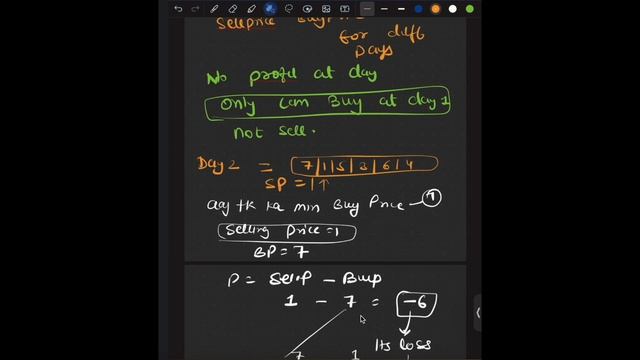 Sellprice Buyprice
for diff
Days
No profit at day
Only can Buy at day 1
not sell.
Day 2 = 7|1|5|3|6|4
SP = 1↑
aaj tk ka min Buy Price - 7
Selling Price = 1
BP = 7
P = SellP - BuyP
1 - 7 = -6
Its loss
7 1